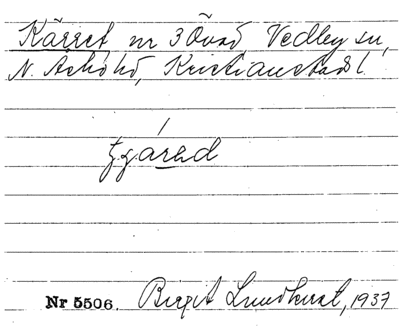 Kärret nr 3 Övad, Vedby sn,
N. Åsbo hd, Kristianstads l.
Nr 5506. Birgit Lundkvist, 1937